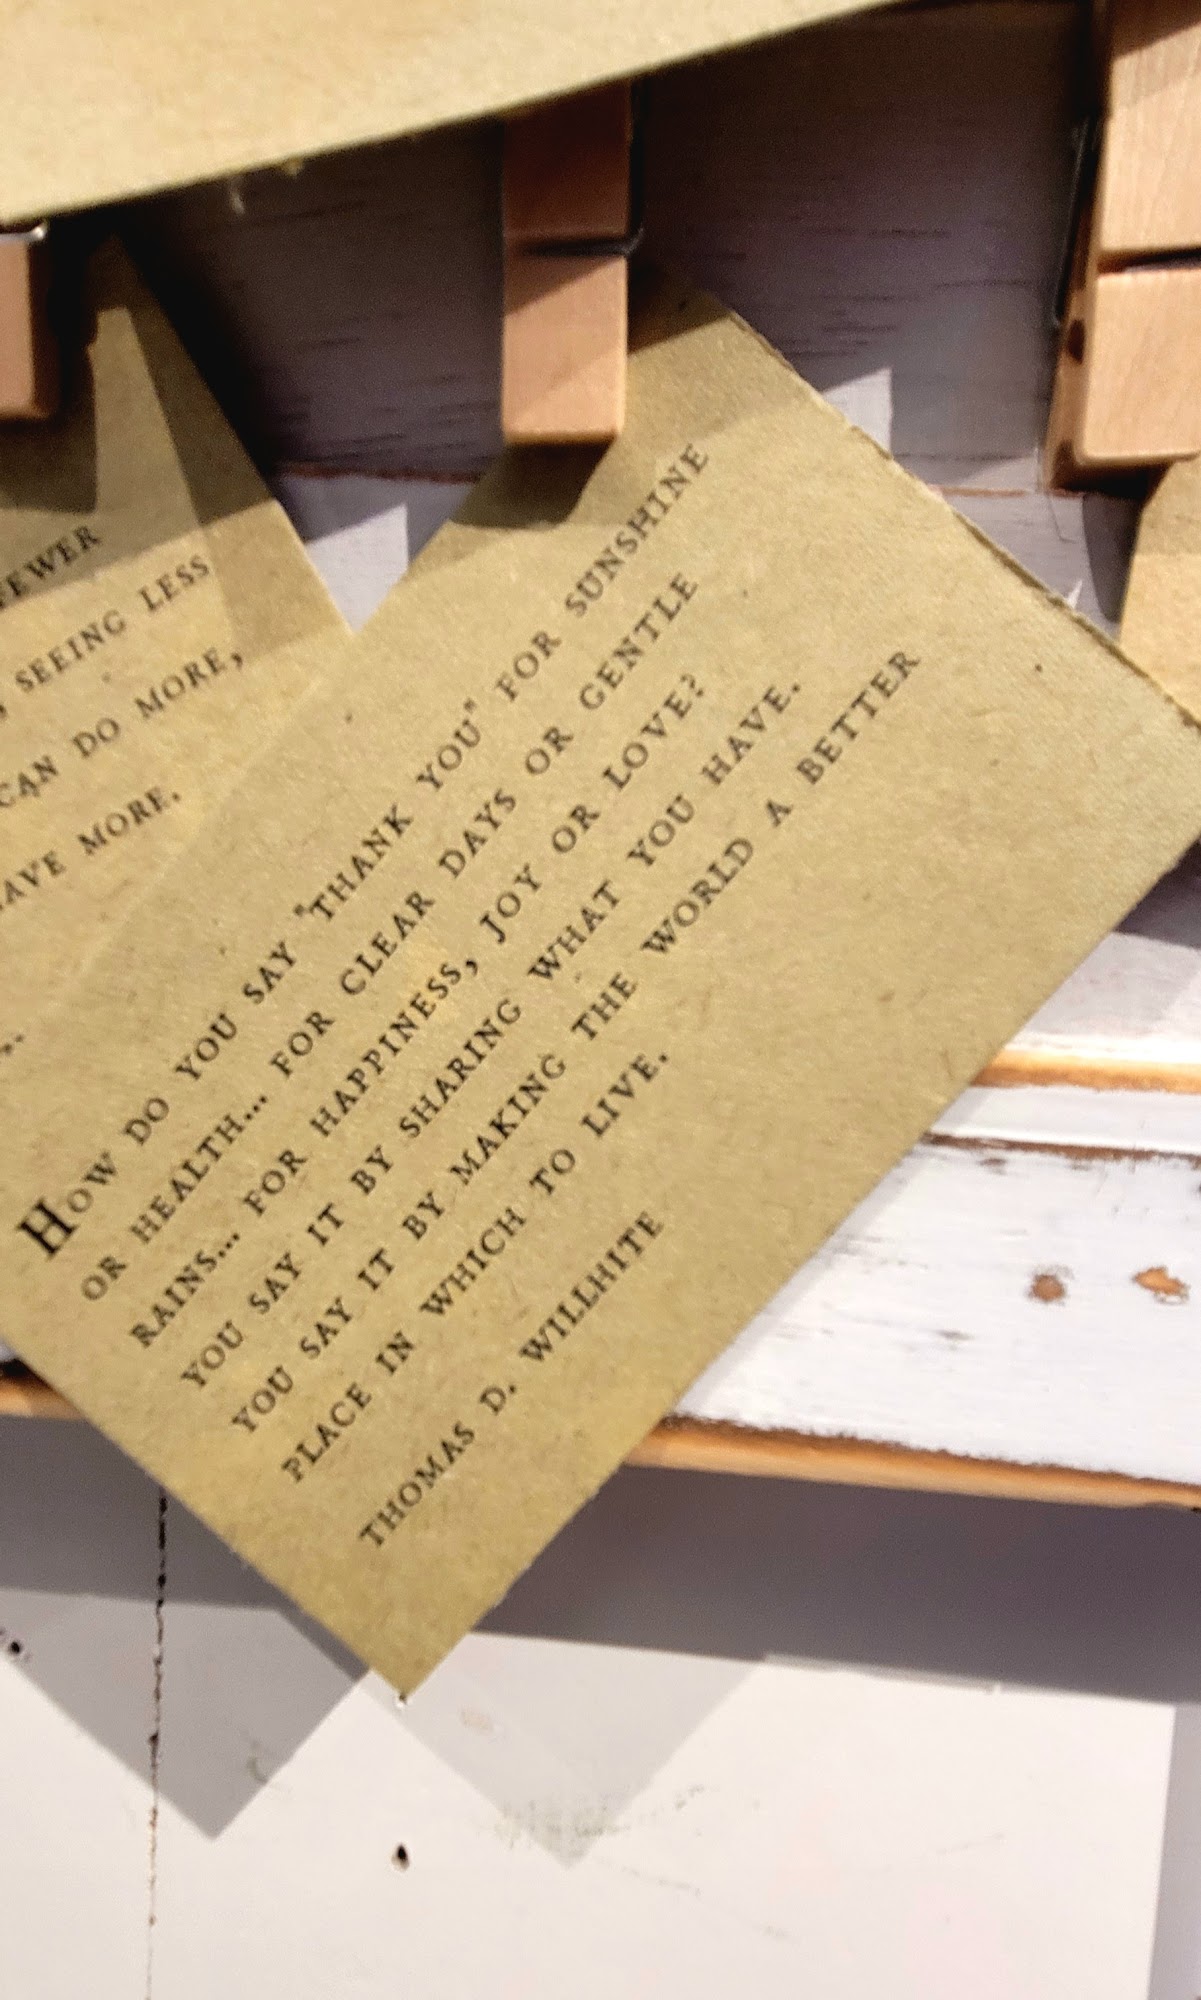 SEEING LESS
CAN DO MORE,
MORE.
How do you say "thank you" for sunshine
or health... for clear days or gentle
rains... for happiness, joy or love?
You say it by sharing what you have.
You say it by making the world a better
place in which to live.
Thomas D. Willhite